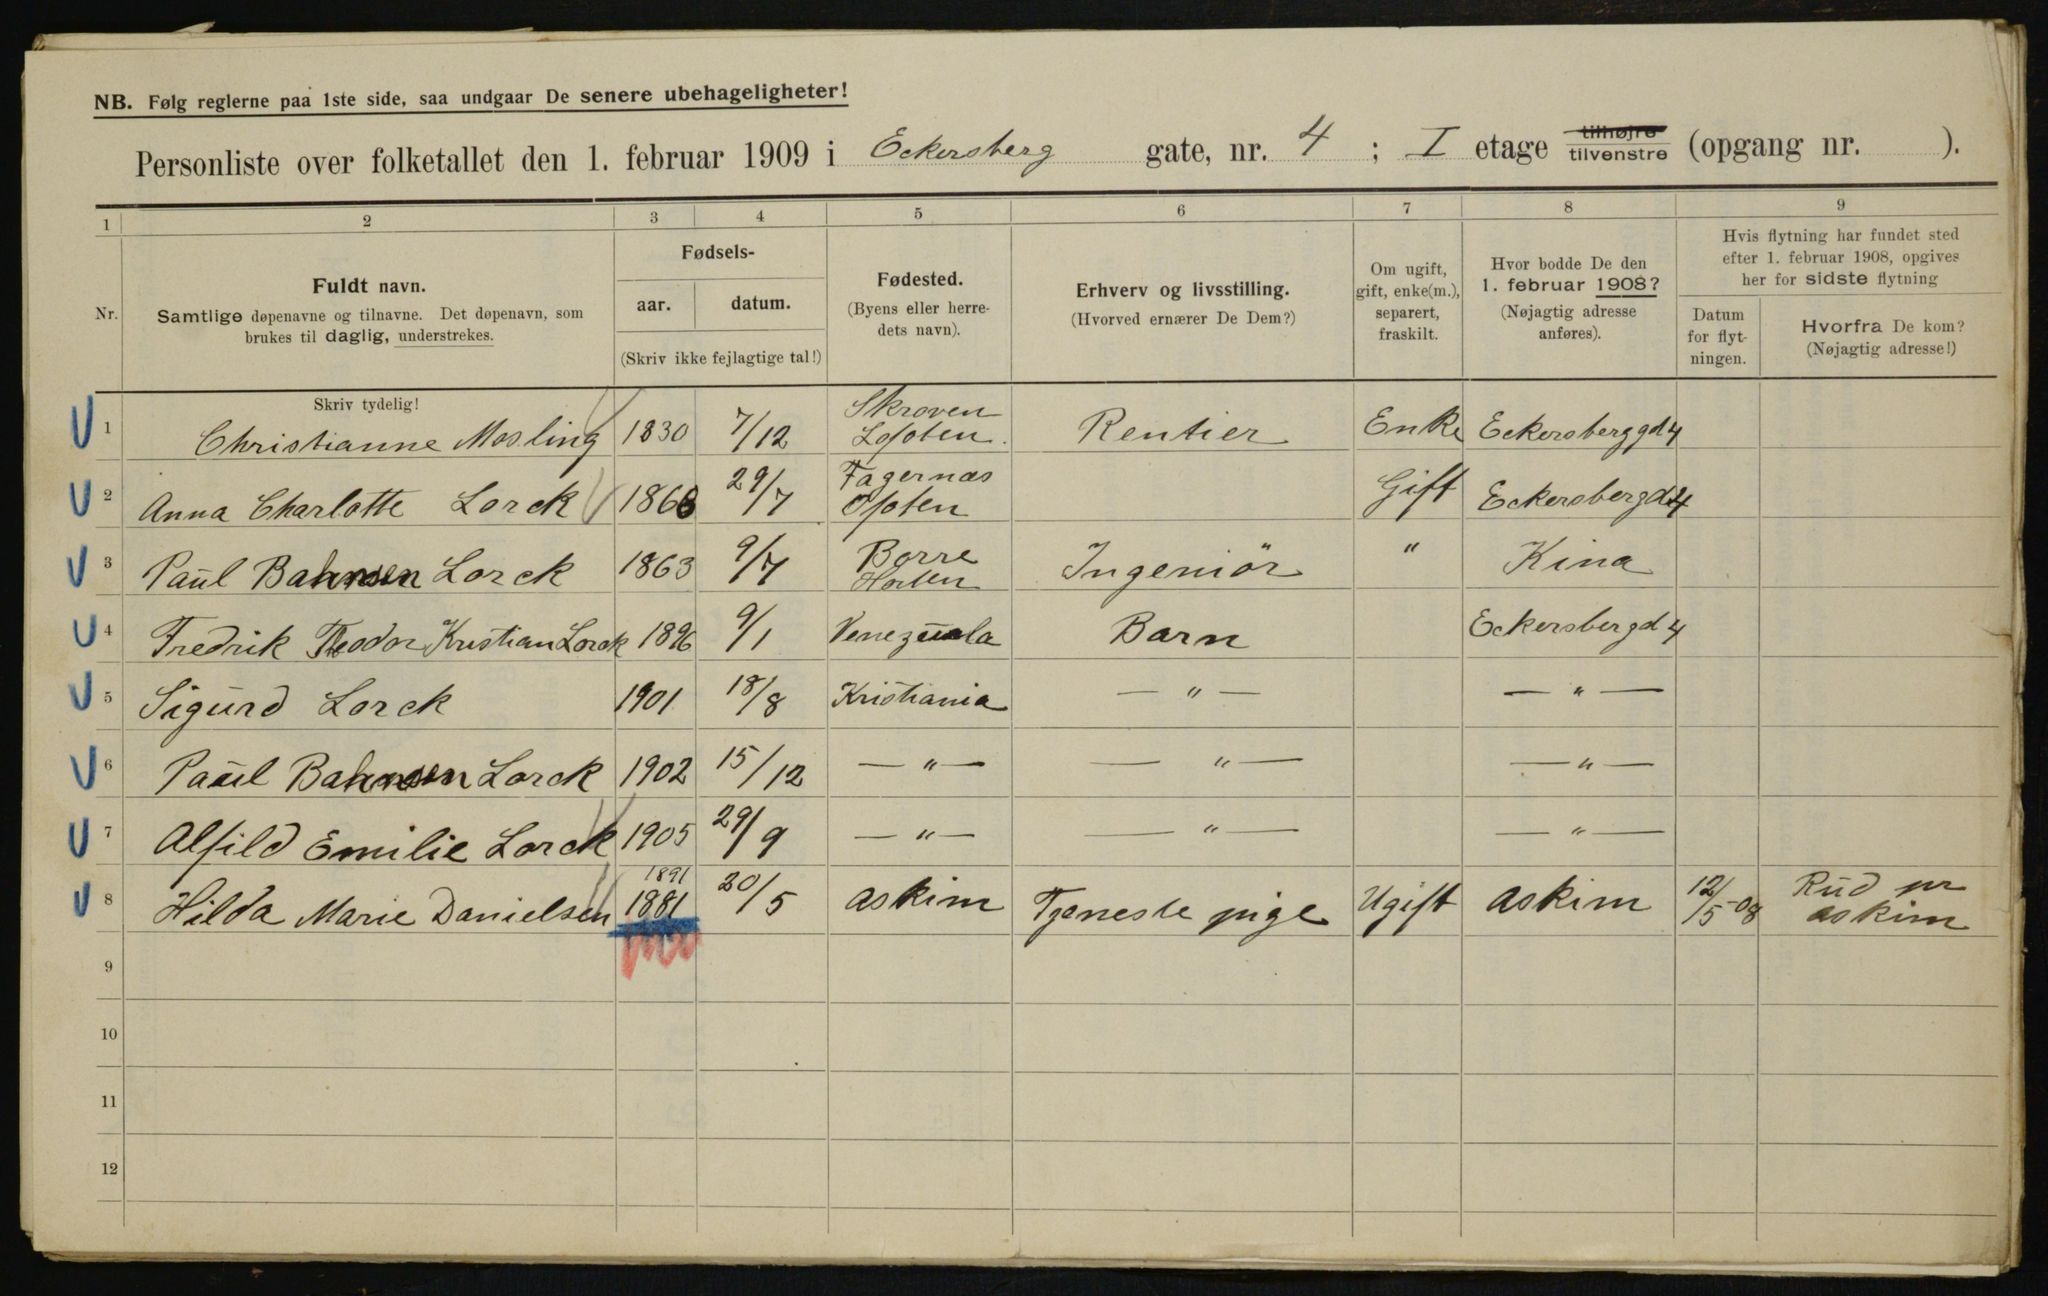 NB. Følg reglerne paa 1ste side, saa undgaar De senere ubehageligheter!
Personliste over folketallet den 1. februar 1909 i Eckersberg gate, nr. 4 ; I etage tilhøjre tilvenstre (opgang nr. ).
1 2 3 4 5 6 7 8 9
Nr.
Fuldt navn.
Samtlige døpenavne og tilnavne. Det døpenavn, som
brukes til daglig, understrekes.
Fødsels-
aar. datum.
(Skriv ikke fejlagtige tal!)
Fødested.
(Byens eller herre-
dets navn).
Erhverv og livsstilling.
(Hvorved ernærer De Dem?)
Om ugift,
gift, enke(m.),
separert,
fraskilt.
Hvor bodde De den
1. februar 1908?
(Nøjagtig adresse
anføres).
Hvis flytning har fundet sted
efter 1. februar 1908, opgives
her for sidste flytning
Datum
for flyt-
ningen.
Hvorfra De kom?
(Nøjagtig adresse!)
Skriv tydelig!
1 Christianne Mosling 1830 7/12 Skroven Lofoten. Rentier Enke Eckersberggd 4
2 Anna Charlotte Lorck 1868 29/7 Fagernæs Ofoten Gift Eckersbergd 4
3 Paul Bahnsen Lorck 1863 9/7 Borre Horten Ingeniör " Kina
4 Fredrik Theodor Kristian Lorck 1896 9/1 Venezuela Barn Eckersbergd 4
5 Sigurd Lorck 1901 18/8 Kristiania — " — — " —
6 Paul Bahnsen Lorck 1902 15/12 — " — — " — — " —
7 Alfild Emilie Lorck 1905 29/9 — " — — " — — " —
1891
8 Hilda Marie Danielsen 1881 20/5 Askim Tjeneste pige Ugift Askim 12/5-08 Rud pr Askim
9
10
11
12